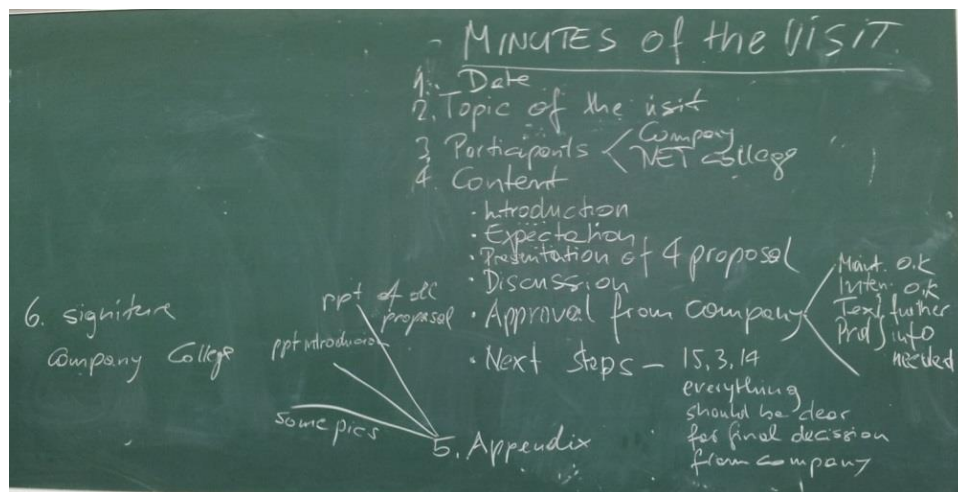 MINUTES of the VISIT
1. Date
2. Topic of the visit
3. Participants
Company
NET College
4. Content
• Introduction
• Expectation
• Presentation of 4 proposal
• Discussion
• Approval from company
Maint. O.K
Inten. O.K
Text. further
Prod info
needed
• Next steps – 15.3.14
everything
should be clear
for final decission
from company
5. Appendix
ppt of all
proposal
ppt introduction
some pics
6. signiture
Company College